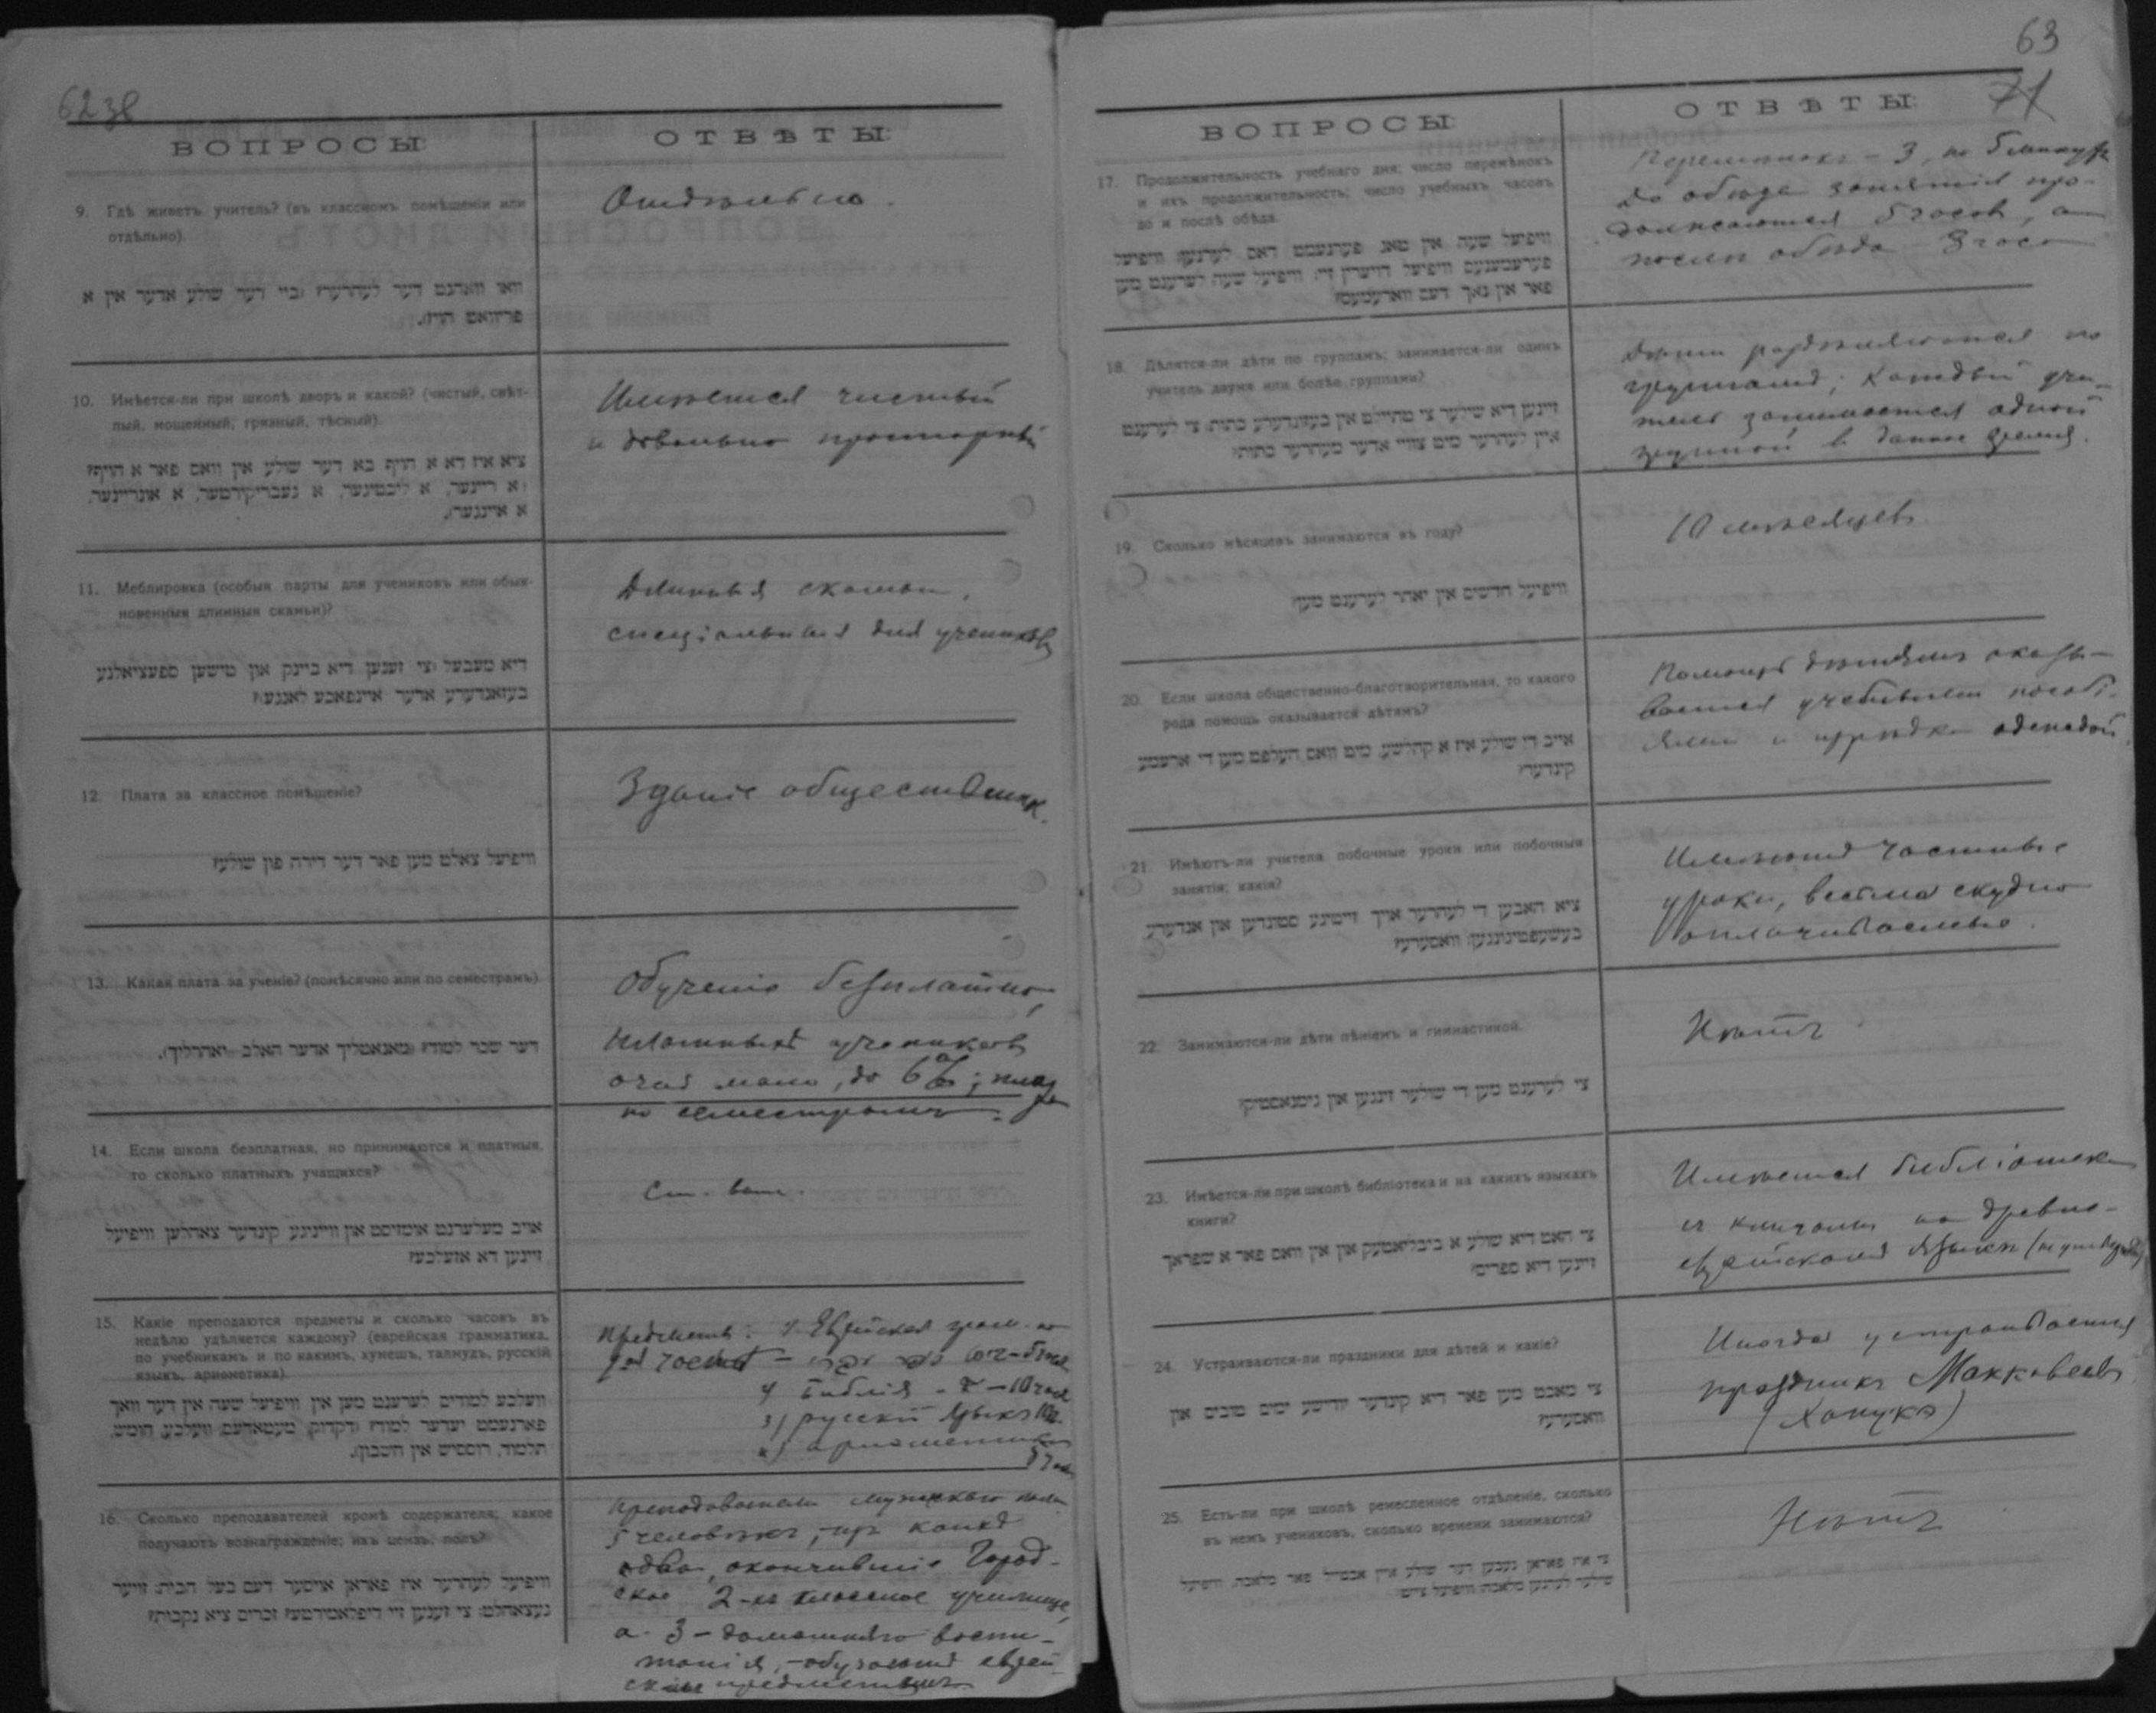 62 зв
ВОПРОСЫ:
ОТВѢТЫ:
9. Гдѣ живетъ учитель? (въ классномъ помѣщеніи или
отдѣльно).
וואו וואהנט דער לעהרער? (ביי דער שולע אדער אין א
פריוואט הויז).
Отдѣльно.
10. Имѣется-ли при школѣ дворъ и какой? (чистый, свѣт-
лый, мощенный, грязный, тѣсный).
ציא איז דא א הויף בא דער שולע אין וואס פאר א הויף?
(א ריינער, א ליכטיגער, א געברוקירטער, א אומריינער,
א איינגער).
Имѣется чистый
и довольно просторный
11. Меблировка (особыя парты для учениковъ или обык-
новенныя длинныя скамьи)?
דיא מעבעל (צי זענען דיא ביינק און טישען ספעציאלנע
בעזאנדערע אדער איינפאכע לאנגע)?
Длинныя скамьи,
спеціальныя для учениковъ
12. Плата за классное помѣщеніе?
וויפיעל צאלט מען פאר דער דירה פון שולע?
Зданіе обществен.
13. Какая плата за ученіе? (помѣсячно или по семестрамъ)
דער שכר למוד? (מאנאטליך אדער האלב-יאהרליך).
Обученіе безплатно,
платныхъ учениковъ
очень мало, до 6%; плата
по семестрамъ.
14. Если школа безплатная, но принимаются и платные,
то сколько платныхъ учащихся?
אויב מעלערנט אומזיסט און ווייניגע קינדער צאהלען וויפיעל
זיינען דא אזעלכע?
См. выше.
15. Какіе преподаются предметы и сколько часовъ въ
недѣлю удѣляется каждому? (еврейская грамматика,
по учебникамъ и по какимъ, хумешъ, талмудъ, русскій
языкъ, ариѳметика).
וועלכע למודים לערענט מען אין וויפיעל שעה אין דער וואך
פארנעמט יעדער למוד? (דקדוק, מעטאדעס, וועלכע, חומש,
תלמוד, רוססיש אין חשבון).
Предметы: 1. Еврейская грам. по
2) Библія - 10 час
3) русскій языкъ 10
4) ариѳметика
16. Сколько преподавателей кромѣ содержателя; какое
получаютъ вознагражденіе; ихъ цензъ, полъ?
וויפיעל לעהרער איז פאראן אויסער דעם בעל הבית; זייער
געצאהלט; צי זענען זיי דיפלאמירטע? זכרים ציא נקבות?
Преподаватели мужского пола
5 человѣкъ, изъ коихъ
два, окончившіе Город-
ское 2-хъ классное училище,
а 3 - домашняго воспи-
танія, - обучаютъ еврей-
скимъ предметамъ
63
71
ВОПРОСЫ:
ОТВѢТЫ:
17. Продолжительность учебнаго дня; число перемѣнокъ
и ихъ продолжительность; число учебныхъ часовъ
до и послѣ обѣда.
וויפיעל שעה אין טאג פערנעמט דאס לערנען; וויפיעל
פערעמענעס וויפיעל דויערין זיי; וויפיעל שעה לערענט מען
פאר אין נאך דעם ווארעמעס?
Перемѣнокъ - 3, по 5 минутъ
до обѣда занятія про-
должаются 5 часовъ, а
послѣ обѣда 3 часа
18. Дѣлятся-ли дѣти по группамъ; занимается-ли одинъ
учитель двумя или болѣе группами?
זיינען דיא שילער צי טהיילט אין בעזונדערע כתות; צי לערענט
איין לעהרער מיט צוויי אדער מעהרער כתות?
Дѣти раздѣляются по
группамъ; каждый учи-
тель занимается одной
группой въ данное время.
19. Сколько мѣсяцевъ занимаются въ году?
וויפיעל חדשים אין יאהר לערענט מען?
10 мѣсяцевъ
20. Если школа общественно-благотворительная, то какого
рода помощь оказывается дѣтямъ?
אויב די שולע איז א קהלשע, מיט וואס העלפט מען די ארעמע
קינדער?
Помощь дѣтямъ оказы-
вается учебными пособі-
ями и изрѣдка одеждой.
21. Имѣютъ-ли учителя побочные уроки или побочныя
занятія; какія?
ציא האבען די לעהרער אייך זייטיגע סטונדען און אנדערע
בעשעפטיגונגען; וואסערע?
Имѣютъ частные
уроки, весьма скудно
оплачиваемые.
22. Занимаются-ли дѣти пѣніемъ и гимнастикой.
צי לערענט מען די שולער זינגען און גימנאסטיק?
Нѣтъ
23. Имѣется-ли при школѣ библіотека и на какихъ языкахъ
книги?
צי האט דיא שולע א ביבליאטעק און אין וואס פאר א שפראך
זיינען דיא ספרים?
Имѣется библіотека
съ книгами на древне-
еврейскомъ языкѣ
24. Устраиваются-ли праздники для дѣтей и какіе?
צי מאכט מען פאר דיא קינדער יודישע ימים טובים און
וואסערע?
Иногда устраивается
праздникъ Маккавеевъ
(Ханука)
25. Есть-ли при школѣ ремесленное отдѣленіе, сколько
въ немъ учениковъ, сколько времени занимаются?
צי איז פאראן נעבען דער שולע אויך אבטייל פאר מלאכה, וויפיעל
שילער לערנען מלאכה; וויפיעל צייט?
Нѣтъ